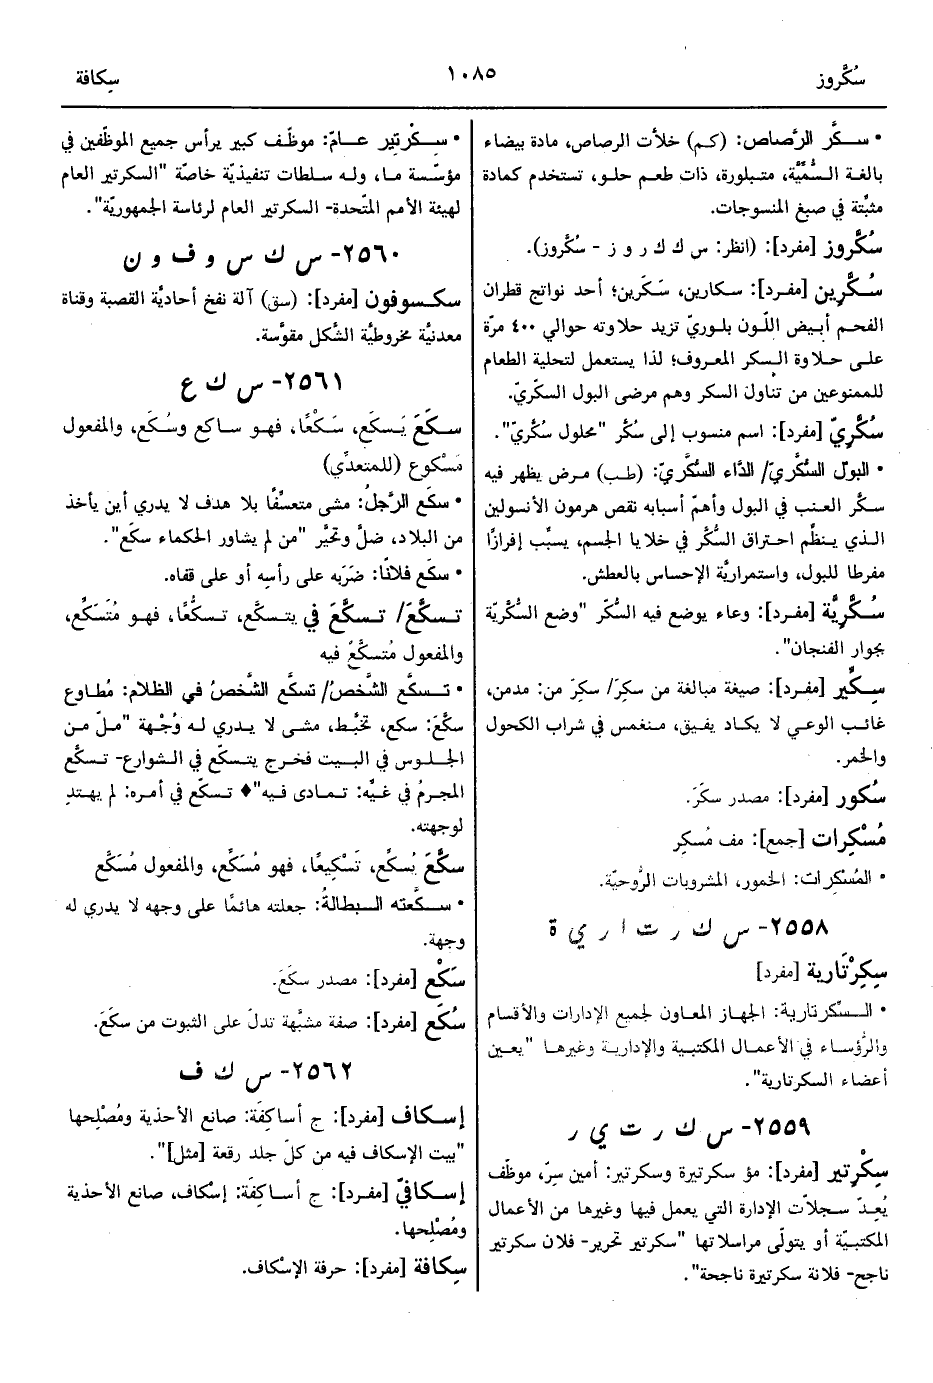 سُكَّروز
١٠٨٥
سِكافة
• سكَّر الرَّصاص: (كم) خلاّت الرصاص، مادة بيضاء
بالغة السُّمِّيَّة، متبلورة، ذات طعم حلو، تستخدم كمادة
مثبِّتة في صبغ المنسوجات.
سُكَّروز [مفرد]: (انظر: س ك ك ر و ز - سُكَّروز).
سُكَّرين [مفرد]: سكارين، سَكَرين؛ أحد نواتج قطران
الفحم أبيض اللّون بلوريّ تزيد حلاوته حوالي ٤٠٠ مرّة
على حلاوة السكر المعروف؛ لذا يستعمل لتحلية الطعام
للممنوعين من تناول السكر وهم مرضى البول السكّريّ.
سُكَّريّ [مفرد]: اسم منسوب إلى سُكَّر "محلول سُكَّريّ".
• البول السُّكَّريّ/ الدَّاء السُّكَّريّ: (طب) مرض يظهر فيه
سكَّر العنب في البول وأهمّ أسبابه نقص هرمون الأنسولين
الذي ينظِّم احتراق السُّكَّر في خلايا الجسم، يسبِّب إفرازًا
مفرطا للبول، واستمراريَّة الإحساس بالعطش.
سُكَّريَّة [مفرد]: وعاء يوضع فيه السُّكّر "وضع السُّكَّريّة
بجوار الفنجان".
سِكِّير [مفرد]: صيغة مبالغة من سكِرَ/ سكِرَ من: مدمن،
غائب الوعي لا يكاد يفيق، منغمس في شراب الكحول
والخمر.
سُكور [مفرد]: مصدر سكَرَ.
مُسْكِرات [جمع]: مف مُسكِر
• المُسْكِرات: الخمور، المشروبات الرُّوحيّة.
٢٥٥٨- س ك ر ت ا ر ي ة
سِكِرْتَارية [مفرد]
• السِّكرتارية: الجهاز المعاون لجميع الإدارات والأقسام
والرُّؤساء في الأعمال المكتبية والإدارية وغيرها "يعين
أعضاء السكرتارية".
٢٥٥٩- س ك ر ت ي ر
سِكْرتير [مفرد]: مؤ سكرتيرة وسكرتير: أمين سِرّ، موظّف
يُعِدّ سجلاّت الإدارة التي يعمل فيها وغيرها من الأعمال
المكتبيّة أو يتولّى مراسلاتها "سكرتير تحرير- فلان سكرتير
ناجح- فلانة سكرتيرة ناجحة".
• سكرتير عامّ: موظّف كبير يرأس جميع الموظّفين في
مؤسّسة ما، وله سلطات تنفيذيّة خاصّة "السكرتير العام
لهيئة الأمم المتّحدة- السكرتير العام لرئاسة الجمهوريّة".
٢٥٦٠- س ك س و ف و ن
سكسوفون [مفرد]: (سق) آلة نفخ أحاديَّة القصبة وقناة
معدنيَّة مخروطيَّة الشكل مقوَّسة.
٢٥٦١- س ك ع
سكَعَ يَسكَع، سَكْعًا، فهو ساكع وسُكَع، والمفعول
مَسْكوع (للمتعدِّي)
• سكَع الرَّجلُ: مشى متعسِّفًا بلا هدف لا يدري أين يأخذ
من البلاد، ضلّ وتحيَّر "من لم يشاور الحكماء سكَع".
• سكَع فلانًا: ضرَبه على رأسِه أو على قفاه.
تسكَّعَ/ تسكَّعَ في يتسكَّع، تسكُّعًا، فهو مُتَسَكِّع،
والمفعول مُتسكَّعٌ فيه
• تسكَّع الشَّخصُ/ تسكَّع الشَّخصُ في الظلام: مُطاوع
سكَّعَ: سكع، تخبَّط، مشى لا يدري له وُجْهة "ملّ من
الجلوس في البيت فخرج يتسكّع في الشوارع- تسكَّع
المجرمُ في غيِّه: تمادى فيه"♦ تسكّع في أمره: لم يهتدِ
لوجهته.
سكَّعَ يُسكِّع، تَسْكيعًا، فهو مُسَكِّع، والمفعول مُسَكَّع
• سكَّعته البطالةُ: جعلته هائمًا على وجهه لا يدري له
وجهة.
سَكْع [مفرد]: مصدر سكَعَ.
سُكَع [مفرد]: صفة مشبَّهة تدلّ على الثبوت من سكَعَ.
٢٥٦٢- س ك ف
إسكاف [مفرد]: ج أساكِفَة: صانع الأحذية ومُصْلِحها
"بيت الإسكاف فيه من كلّ جلد رقعة [مثل]".
إسكافيّ [مفرد]: ج أساكِفَة: إسْكاف، صانع الأحذية
ومُصْلِحها.
سِكافة [مفرد]: حرفة الإسْكاف.